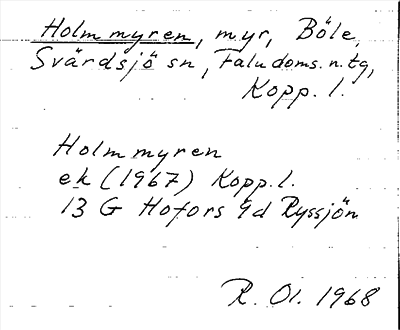 Holmmyren, myr, Böle,
Svärdsjö sn, Faludoms. n. tg,
Kopp. l.
Holmmyren
ek (1967) Kopp. l.
13 G Hofors 9d Ryssjön
R. Ol. 1968